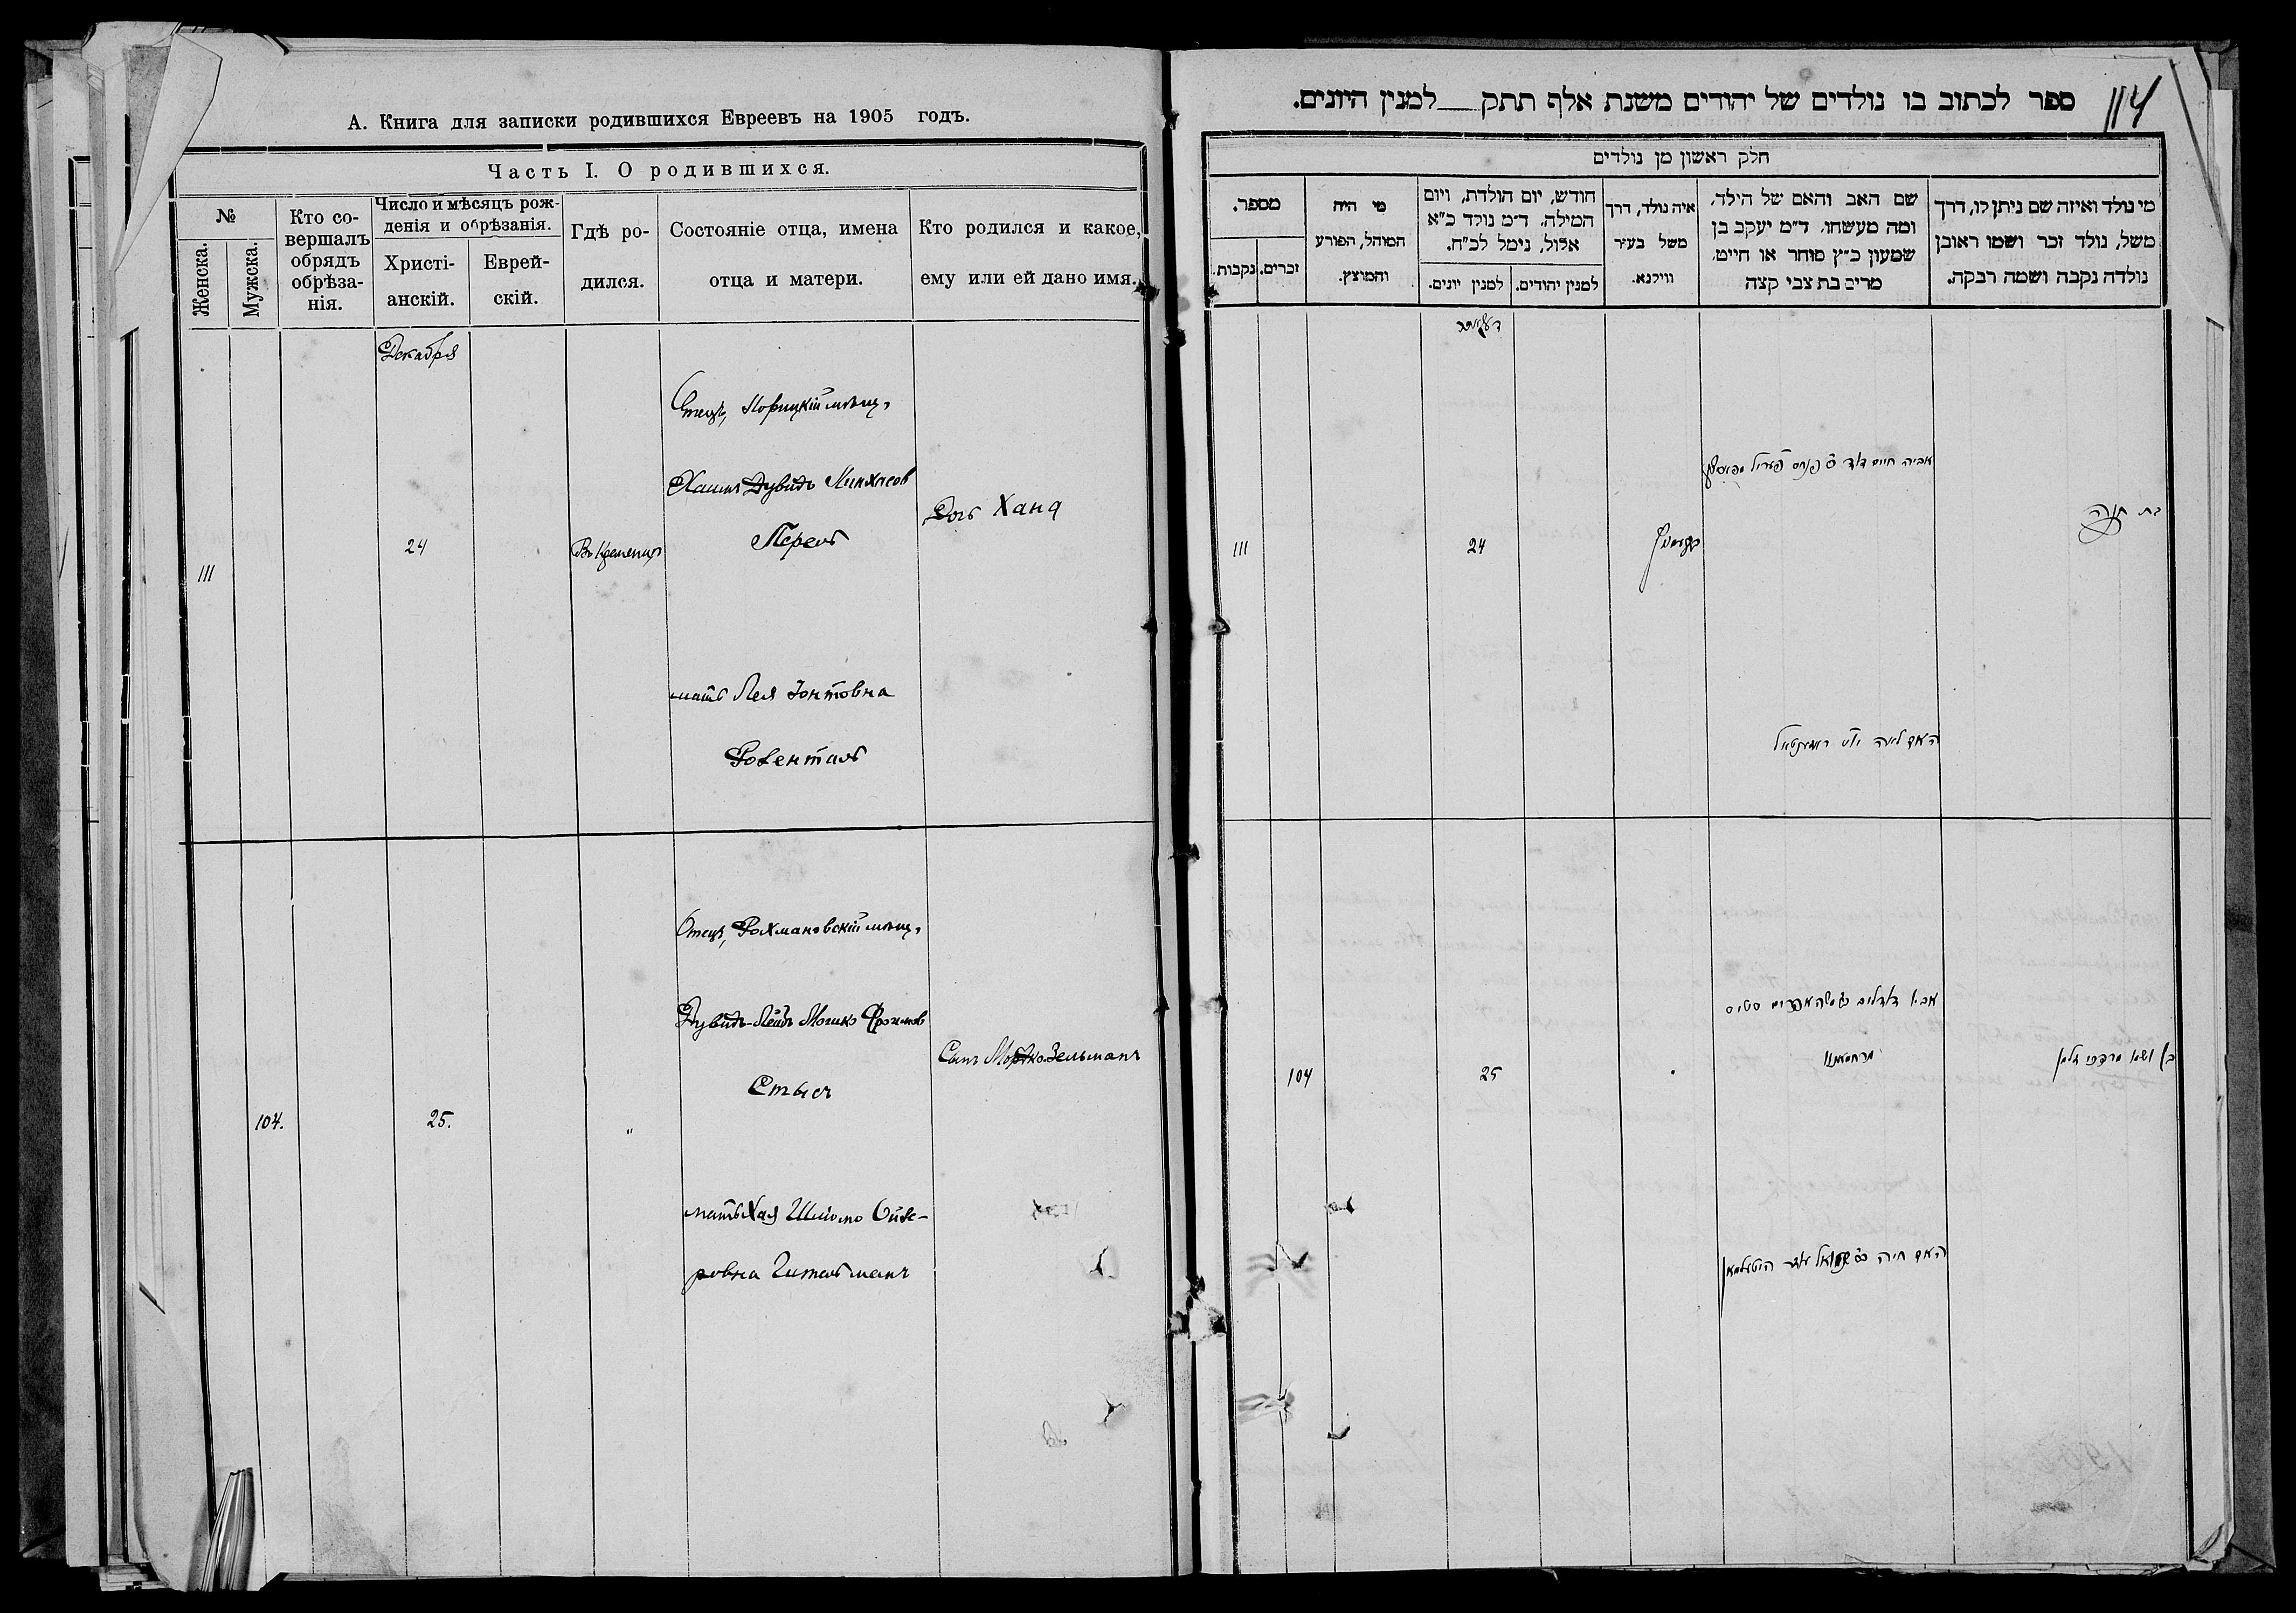 А. Книга для записки родившихся Евреевъ на 1905 годъ.
Часть I. О родившихся.
№
Женска.
Мужска.
Кто со-
вершалъ
обрядъ
обрѣза-
нія.
Число и мѣсяцъ рож-
денія и обрѣзанія.
Христі-
анскій.
Еврей-
скій.
Гдѣ ро-
дился.
Состояніе отца, имена
отца и матери.
Кто родился и какое,
ему или ей дано имя.
Декабря
111
24
Въ Кременцѣ
Отецъ, Порицкій мѣщ.
Хаимъ Дувидъ Пинхасов
Перель
мать Лея Іонтовна
Розенталь
Дочь Хана
104.
25.
"
Отецъ, Рахмановскій мѣщ.
Дувидъ-Лейбъ Мошко Фроимов
Стысъ
мать Хая Шміомо Ойзе-
ровна Гительманъ
Сынъ Мордко Зельманъ
114
ספר לכתוב בו נולדים של יהודים משנת אלף תתק למנין היונים.
חלק ראשון מן נולדים
מספר.
נקבות.
זכרים.
מי היה
המוהל, הפורע
והמוצץ.
חודש, יום הולדת, ויום
המילה. ד״מ נולד כ״א
אלול, נימל לכ״ח.
למנין יונים.
למנין יהודים.
איה נולד, דרך
משל בעיר
ווילנא.
שם האב והאם של הילד.
ומה מעשהו. ד״מ יעקב בן
שמעון כ״ץ סוחר או חייט.
מרים בת צבי קצה
מי נולד ואיזה שם ניתן לו, דרך
משל, נולד זכר ושמו ראובן
נולדה נקבה ושמה רבקה.
111
24
אביה חיים דוד
בת חנה
האם לאה
104
25
אביו
בן ושמו מרדכי זלמן
האם חיה